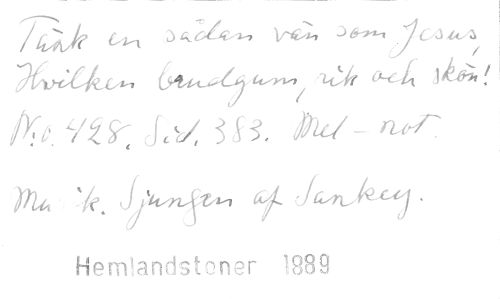 Tänk en sådan vän som Jesus,
Hvilken brudgum, rik och skön!
No. 428. Sid. 383. Mel-not.
Musik. Sjungen af Sankey.
Hemlandstoner 1889